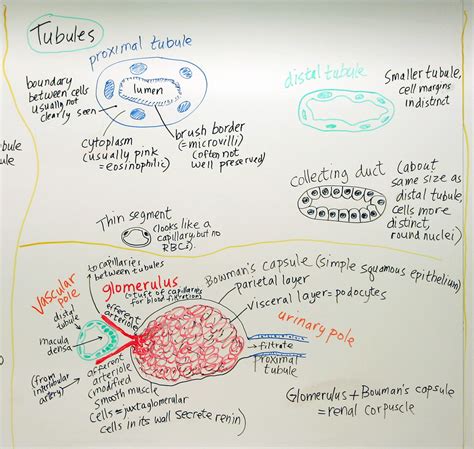 Tubules
proximal tubule
boundary
between cells
usually not
clearly seen
lumen
cytoplasm
(usually pink
= eosinophilic)
brush border
(= microvilli)
(often not
well preserved)
distal tubule
Smaller tubule,
cell margins
indistinct
collecting duct
(about
same size as
distal tubule,
cells more
distinct,
round nuclei)
Thin segment
(looks like a
capillary, but no
RBCs)
bule
ule
Vascular
pole
to capillaries
between tubules
glomerulus
= tuft of capillaries
for blood filtration
efferent
arteriole
distal
tubule
macula
densa
(from
interlobular
artery)
afferent
arteriole
(modified
smooth muscle
cells = juxtaglomerular
cells in its wall secrete renin)
Bowman's capsule (simple squamous epithelium)
parietal layer
visceral layer = podocytes
urinary pole
filtrate
proximal
tubule
Glomerulus + Bowman's capsule
= renal corpuscle